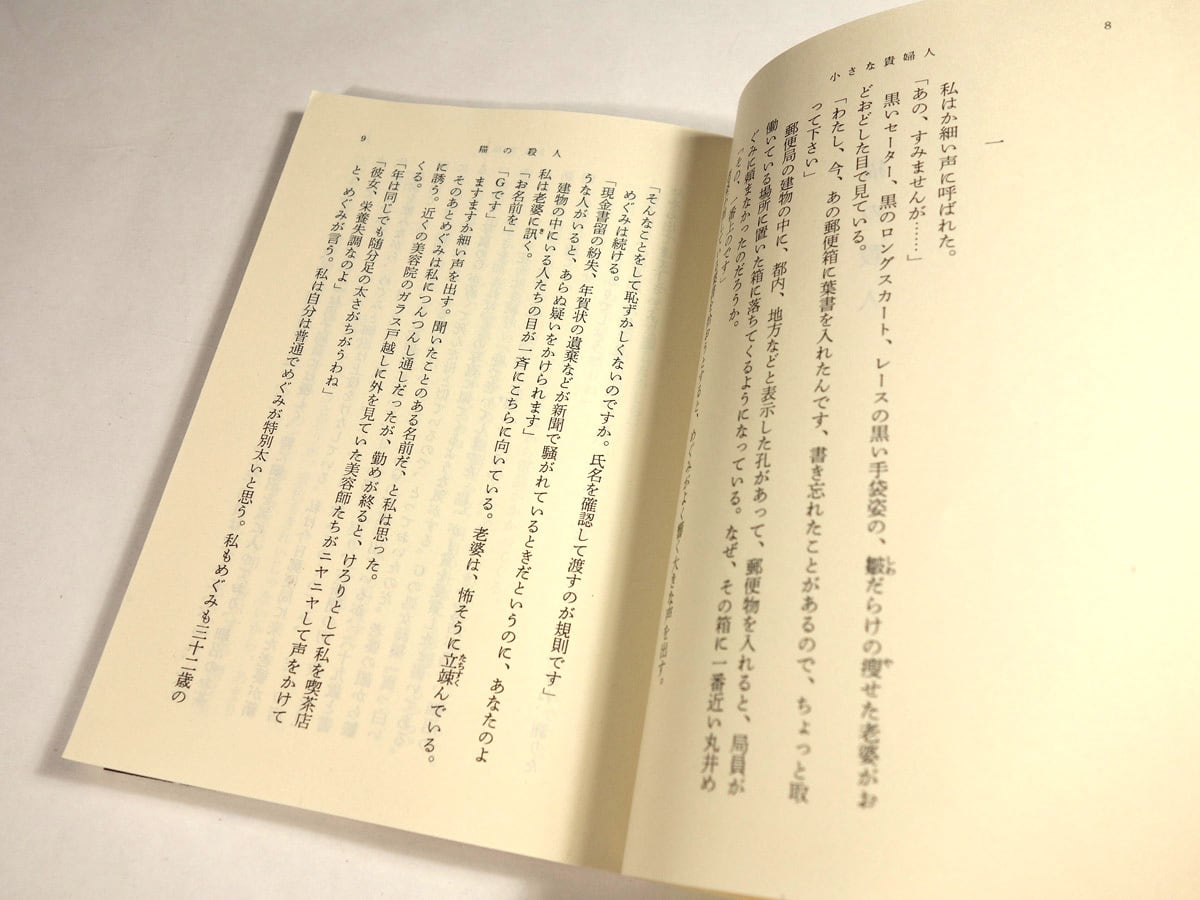 8
小さな貴婦人
一
私はか細い声に呼ばれた。
「あの、すみませんが……」
黒いセーター、黒のロングスカート、レースの黒い手袋姿の、皺だらけの瘦せた老婆がお
どおどした目で見ている。
「わたし、今、あの郵便箱に葉書を入れたんです、書き忘れたことがあるので、ちょっと取
って下さい」
郵便局の建物の中に、都内、地方などと表示した孔があって、郵便物を入れると、局員が
働いている場所に置いた箱に落ちてくるようになっている。なぜ、その箱に一番近い丸井め
ぐみに頼まなかったのだろうか。
「その、一番上のです」
めぐみがよく響く大きな声を出す。
9
猫の殺人
「そんなことをして恥ずかしくないのですか。氏名を確認して渡すのが規則です」
めぐみは続ける。
「現金書留の紛失、年賀状の遺棄などが新聞で騒がれているときだというのに、あなたのよ
うな人がいると、あらぬ疑いをかけられます」
建物の中にいる人たちの目が一斉にこちらに向いている。老婆は、怖そうに立竦んでいる。
私は老婆に訊く。
「お名前を」
「Gです」
ますますか細い声を出す。聞いたことのある名前だ、と私は思った。
そのあとめぐみは私につんつんし通しだったが、勤めが終ると、けろりとして私を喫茶店
に誘う。近くの美容院のガラス戸越しに外を見ていた美容師たちがニヤニヤして声をかけて
くる。
「年は同じでも随分足の太さがちがうわね」
「彼女、栄養失調なのよ」
と、めぐみが言う。私は自分は普通でめぐみが特別太いと思う。私もめぐみも三十二歳の